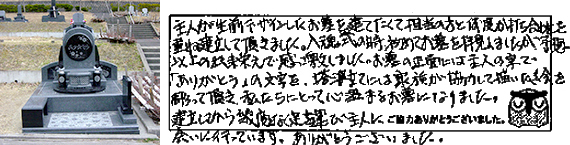 ありがとう
主人が生前デザインしたお墓を建てたくて担当の方と何度か打ち合せを
重ね建立して頂きました。入魂式の時初めてお墓を拝見しましたが予想
以上の出来栄えで感激致しました。お墓の正面には主人の字で
「ありがとう」の文字を、塔婆立てには家族が協力して描いた絵を
彫って頂き、私たちにとって心温まるお墓になりました。
建立してから 主人に
会いに行っています。ありがとうございました。
ご協力ありがとうございました。